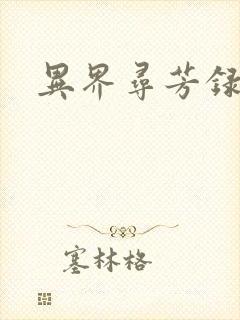 異界尋芳録
塞林格